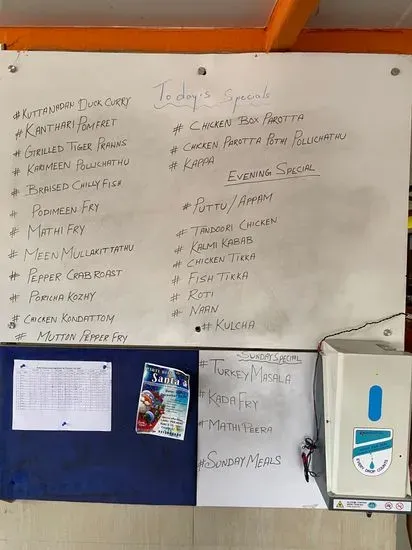 Today's Specials
# KUTTANADAN DUCK CURRY
# KANTHARI POMFRET
# GRILLED TIGER PRAWNS
# KARIMEEN POLLICHATHU
# BRAISED CHILLY FISH
# PODIMEEN FRY
# MATHI FRY
# MEEN MULLAKITTATHU
# PEPPER CRAB ROAST
# PORICHA KOZHY
# CHICKEN KONDATTOM
# MUTTON PEPPER FRY
# CHICKEN BOX PAROTTA
# CHICKEN PAROTTA POTHI POLLICHATHU
# KAPPA
EVENING SPECIAL
# PUTTU/APPAM
# TANDOORI CHICKEN
# KALMI KABAB
# CHICKEN TIKKA
# FISH TIKKA
# ROTI
# NAAN
# KULCHA
SUNDAY SPECIAL
# TURKEY MASALA
# KADA FRY
# MATHI PEERA
# SUNDAY MEALS
Santa
EVERY DROP COUNTS